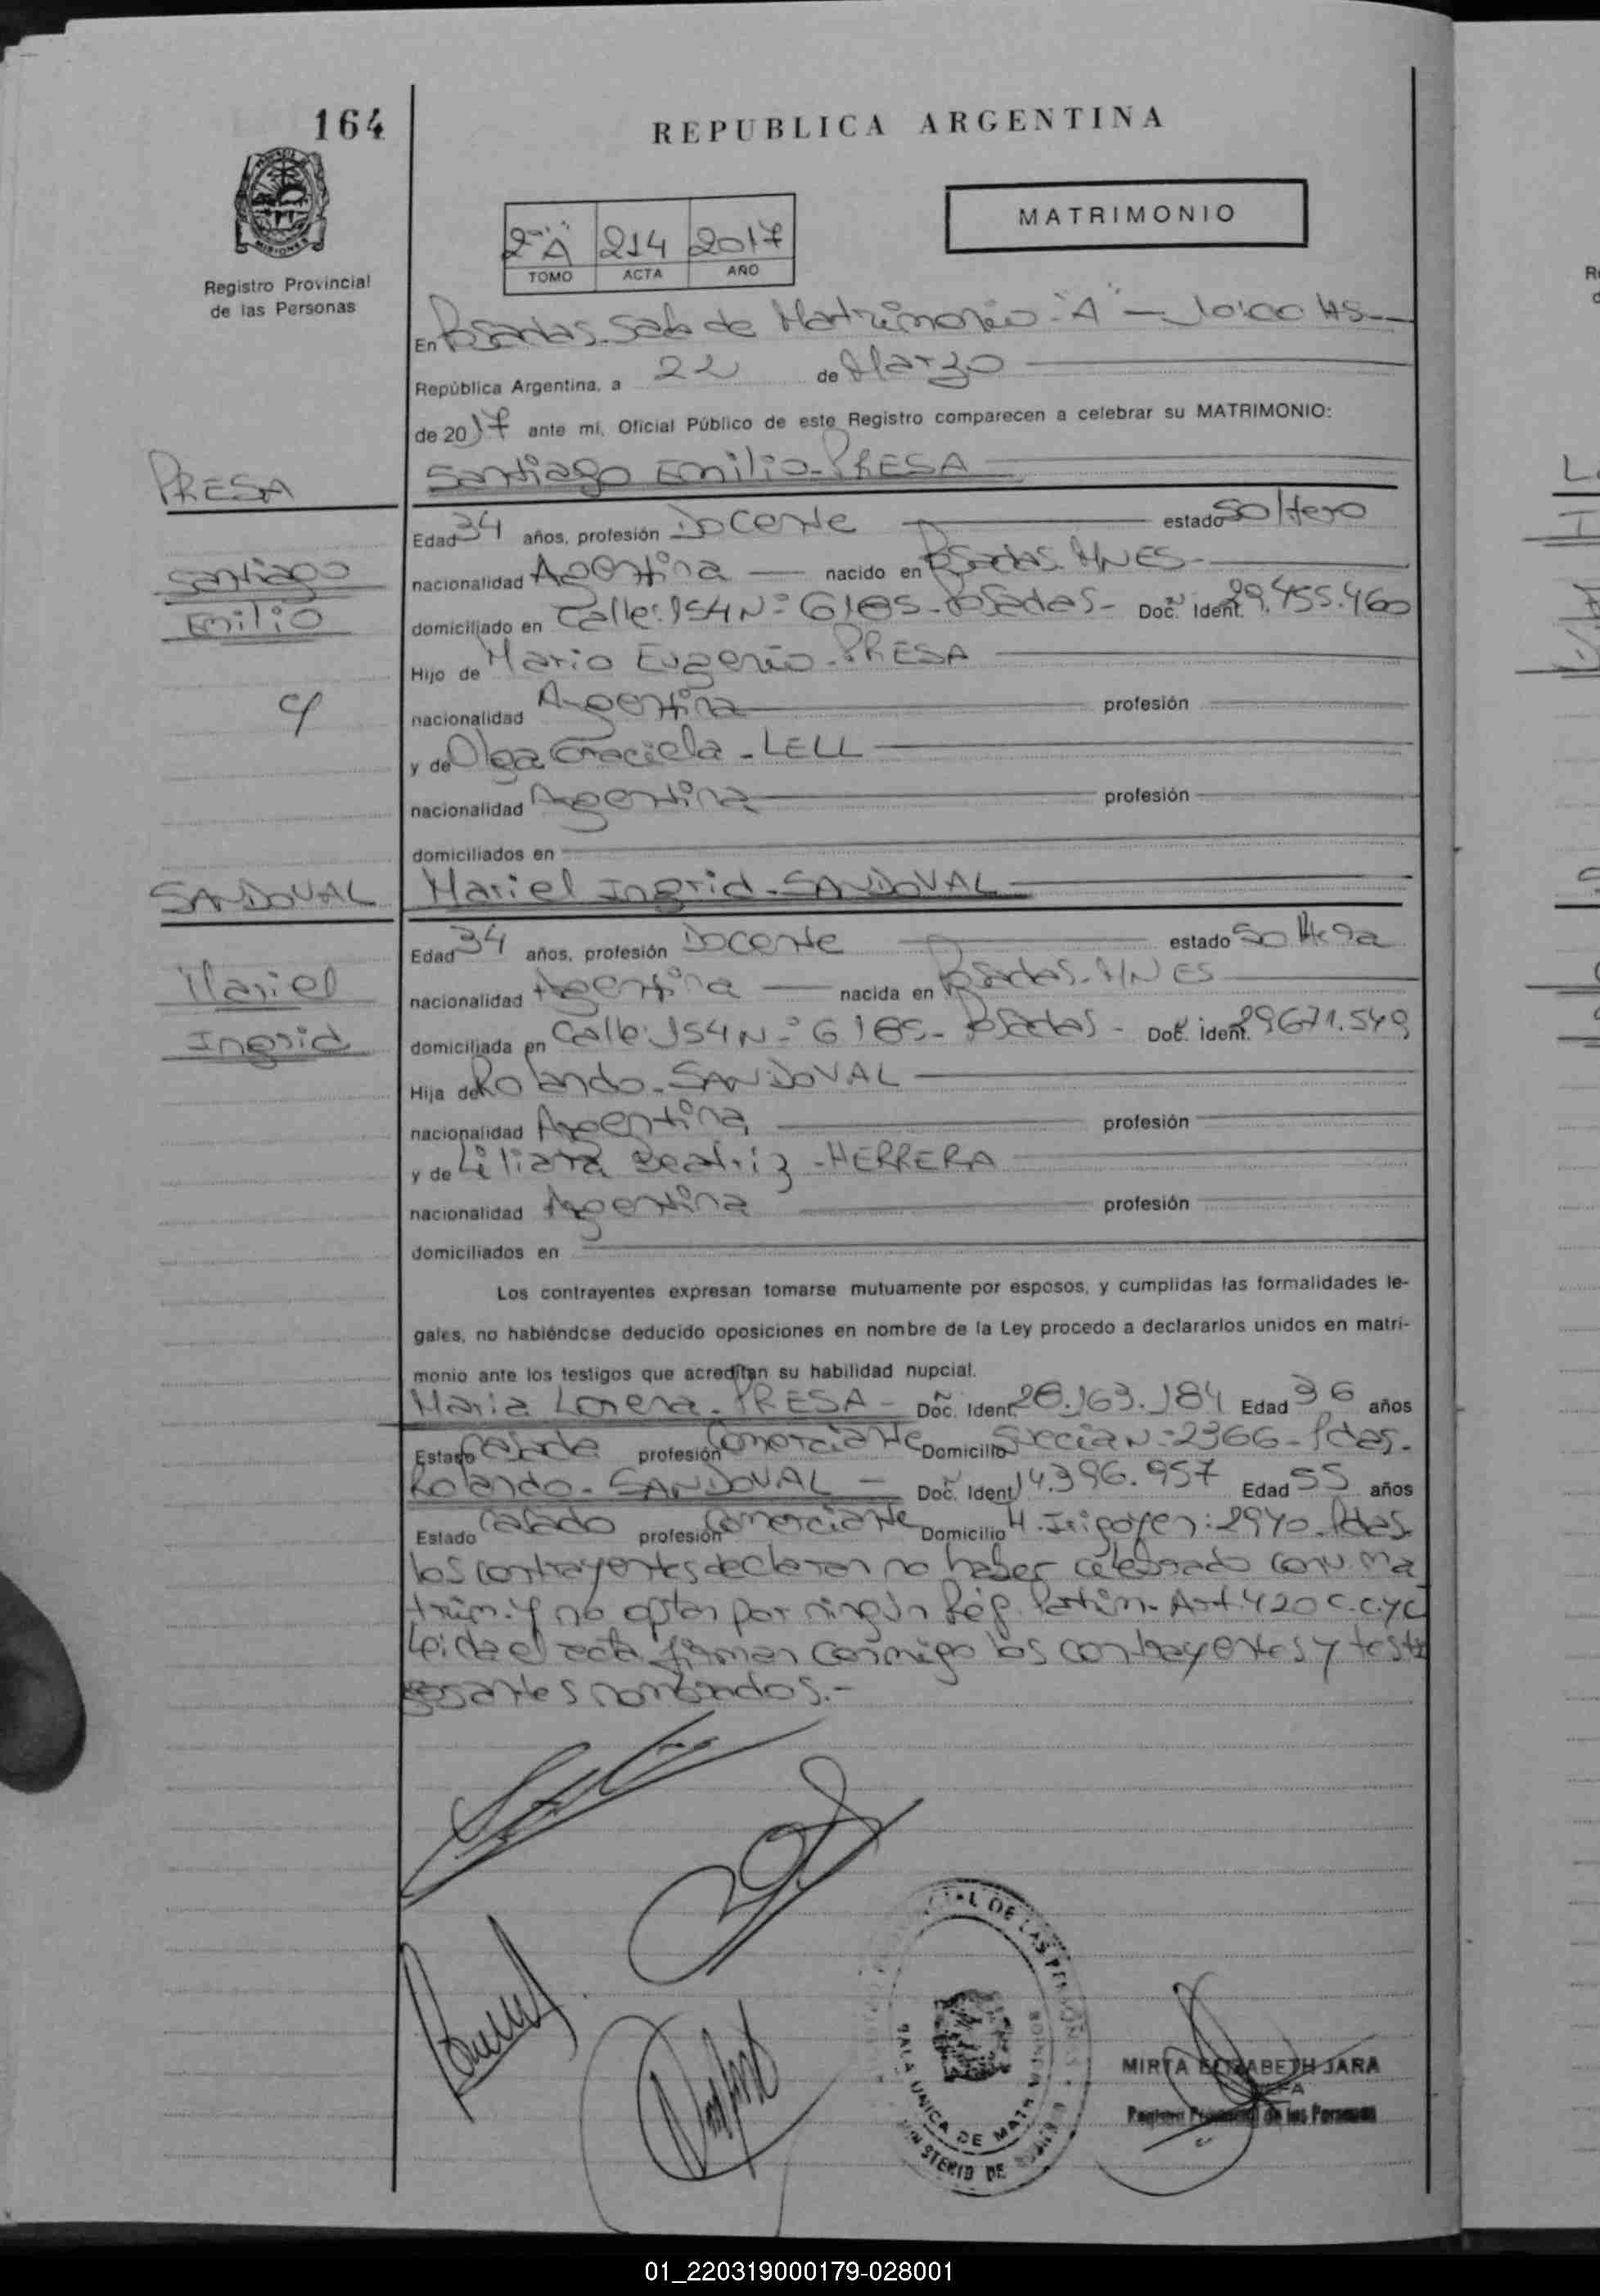 164
REPUBLICA ARGENTINA
MISIONES
Registro Provincial
de las Personas
MATRIMONIO
2° "A" 214 2017
TOMO ACTA AÑO
En Posadas. Sala de Matrimonio "A" - 10:00 HS.
República Argentina, a 22 de Marzo
de 2017 ante mí, Oficial Público de este Registro comparecen a celebrar su MATRIMONIO:
PRESA
Santiago Emilio - PRESA
Edad 34 años, profesión Docente estado Soltero
Santiago
nacionalidad Argentina nacido en Posadas. MNES.
Emilio
domiciliado en Calle: 154 N° 6185 - Posadas - Doc. Ident. 29.455.460
Hijo de Mario Eugenio - PRESA
c/
nacionalidad Argentina profesión
y de Olga Graciela - LELL
nacionalidad Argentina profesión
domiciliados en
SANDOVAL
Mariel Ingrid - SANDOVAL
Edad 34 años, profesión Docente estado Soltera
Mariel
nacionalidad Argentina nacida en Posadas - MNES
Ingrid
domiciliada en Calle: 154 N° 6185 - Posadas - Doc. Ident. 29671.549
Hija de Rolando - SANDOVAL
nacionalidad Argentina profesión
y de Liliana Beatriz - HERRERA
nacionalidad Argentina profesión
domiciliados en
Los contrayentes expresan tomarse mutuamente por esposos, y cumplidas las formalidades le-
gales, no habiéndose deducido oposiciones en nombre de la Ley procedo a declararlos unidos en matri-
monio ante los testigos que acreditan su habilidad nupcial.
Maria Lorena - PRESA - Doc. Ident. 28.163.184 Edad 36 años
Estado Casada profesión Comerciante Domicilio Suecia N° 2366 - Pdas.
Rolando - SANDOVAL - Doc. Ident. 14.396.957 Edad 55 años
Estado Casado profesión Comerciante Domicilio H. Irigoyen: 2940. Pdas.
Los contrayentes declaran no haber celebrado conv. ma
trim. y no optan por ningún Rég. Patrim. Art. 420 C.C.y C
Leida el acta, firman conmigo los contrayentes y testi
gos antes nombrados.-
DE LAS PERSONAS
SALA UNICA DE MATR
MINISTERIO DE
MIRTA ELIZABETH JARA
JEFA
Registro Provincial de las Personas
01_220319000179-028001